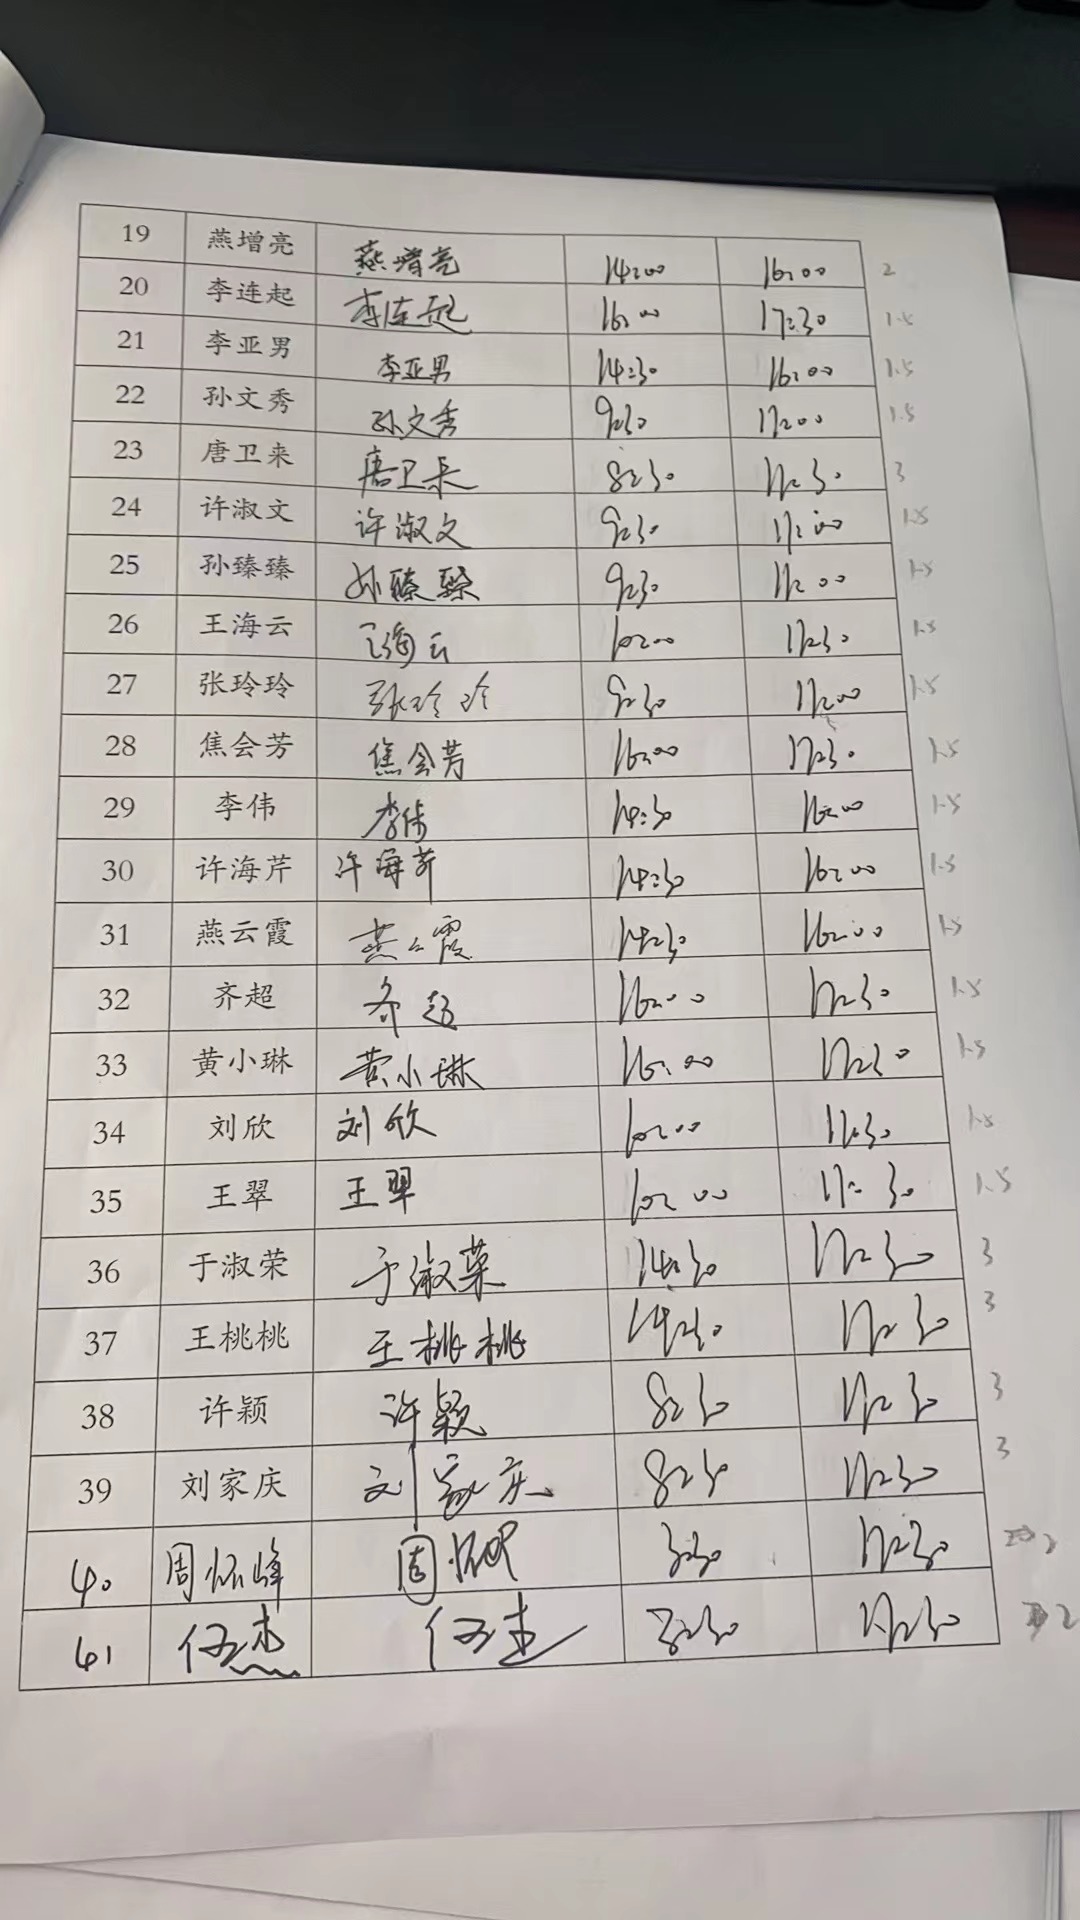 19 燕增亮 燕增亮 14:00 16:00 2
20 李连起 李连起 16:00 17:30 1.5
21 李亚男 李亚男 14:30 16:00 1.5
22 孙文秀 孙文秀 9:30 11:00 1.5
23 唐卫来 唐卫来 8:30 11:30 3
24 许淑文 许淑文 9:30 11:00 1.5
25 孙臻臻 孙臻臻 9:30 11:00 1.5
26 王海云 王海云 10:00 11:30 1.5
27 张玲玲 张玲玲 9:30 11:00 1.5
28 焦会芳 焦会芳 16:00 17:30 1.5
29 李伟 李伟 14:30 16:00 1.5
30 许海芹 许海芹 14:30 16:00 1.5
31 燕云霞 燕云霞 14:30 16:00 1.5
32 齐超 齐超 16:00 17:30 1.5
33 黄小琳 黄小琳 16:00 17:30 1.5
34 刘欣 刘欣 10:00 11:30 1.5
35 王翠 王翠 10:00 11:30 1.5
36 于淑荣 于淑荣 14:30 17:30 3
37 王桃桃 王桃桃 14:30 17:30 3
38 许颖 许颖 8:30 11:30 3
39 刘家庆 刘家庆 8:30 11:30 3
40 周怀峰 周怀峰 2
41 伍杰 伍杰 2